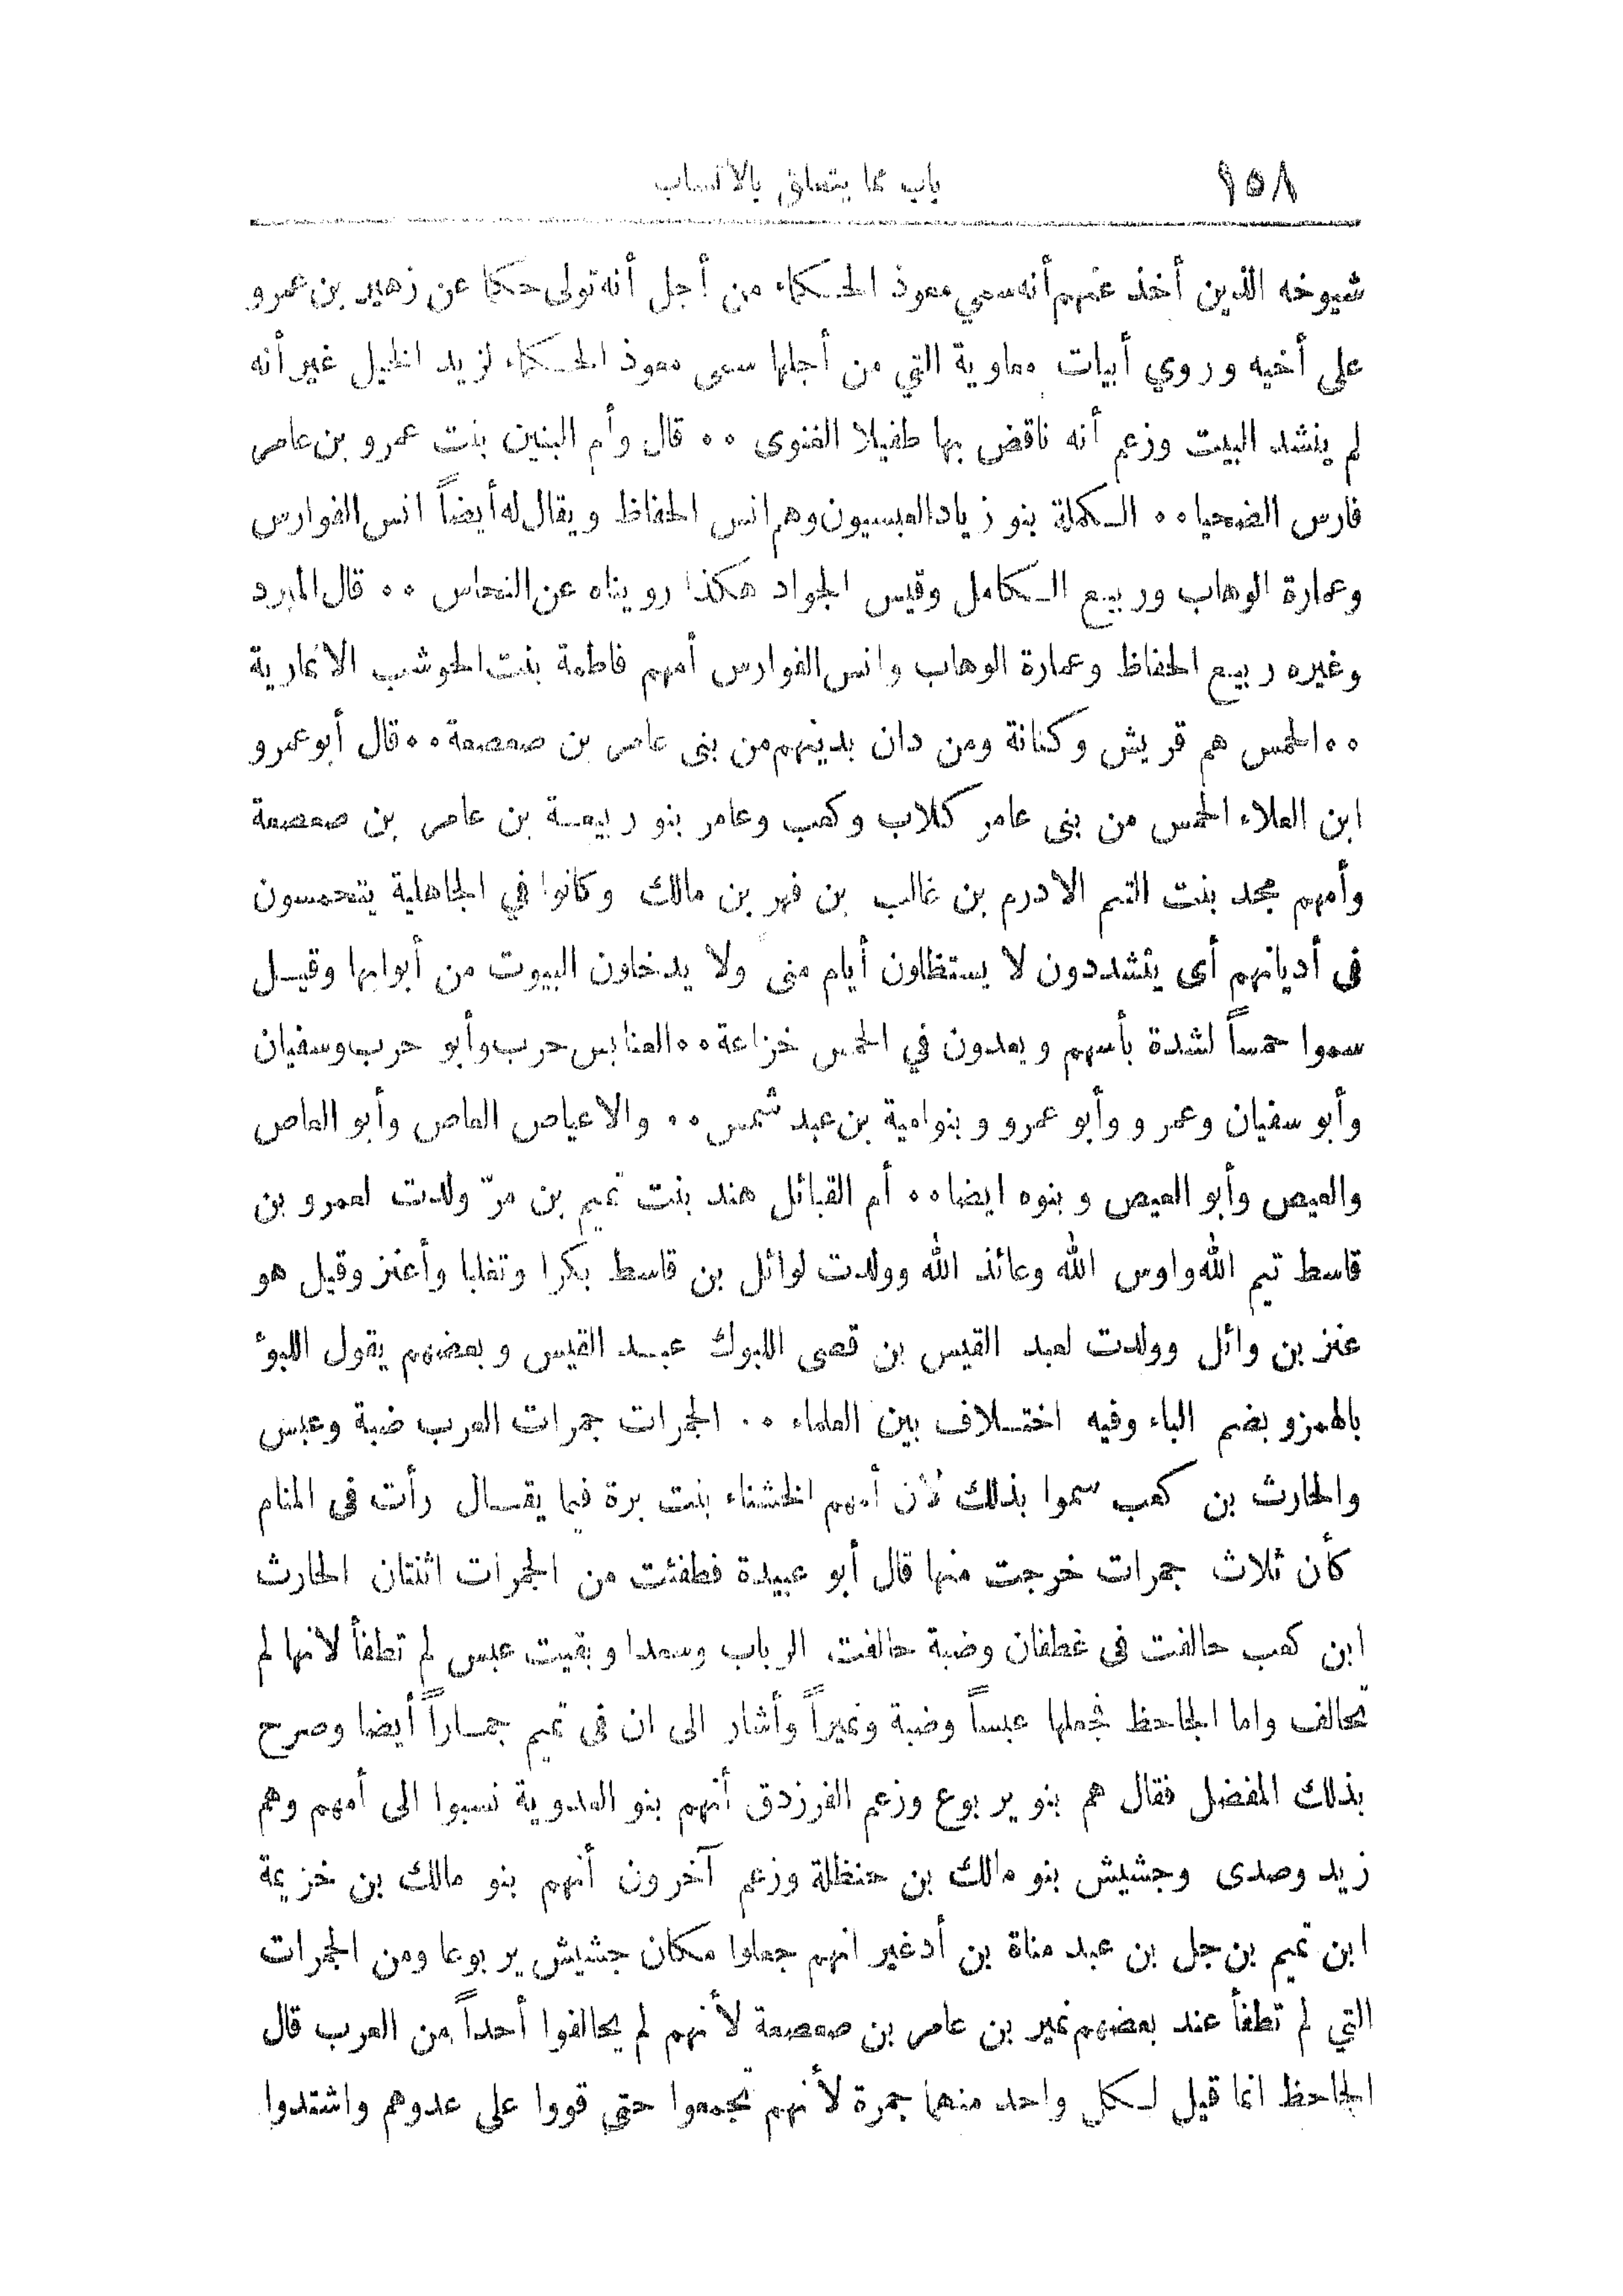 ١٥٨ باب مما يتعلق بالانساب
شيوخه الذين أخذ عنهم أنه سمي معوذ الحكماء من أجل أنه تولى حكما عن زهير بن عمرو
على أخيه وروي أبيات معاوية التي من أجلها سمى معوذ الحكماء لزيد الخيل غير أنه
لم ينشد البيت وزعم أنه ناقض بها طفيلا الغنوى ٠٠ قال وأم البنين بنت عمرو بن عامر
فارس الضحيا ٠٠ الكملة بنو زياد العبسيون وهم انس الحفاظ ويقال له أيضاً انس الفوارس
وعمارة الوهاب وربيع الكامل وقيس الجواد هكذا رويناه عن النحاس ٠٠ قال المبرد
وغيره ربيع الحفاظ وعمارة الوهاب وانس الفوارس أمهم فاطمة بنت الخوشب الانمارية
٠٠ الحمس هم قريش وكنانة ومن دان بدينهم من بنى عامر بن صعصعة ٠٠ قال أبو عمرو
ابن العلاء الحمس من بنى عامر كلاب وكعب وعامر بنو ربيعة بن عامر بن صعصعة
وأمهم مجد بنت التيم الادرم بن غالب بن فهر بن مالك وكانوا في الجاهلية يتحمسون
فى أديانهم أى يتشددون لا يستظلون أيام منى ولا يدخلون البيوت من أبوابها وقيل
سموا حمساً لشدة بأسهم ويعدون في الحمس خزاعة ٠٠ العنابس حرب وأبو حرب وسفيان
وأبو سفيان وعمرو وأبو عمرو وبنو امية بن عبد شمس ٠٠ والاعياص العاص وأبو العاص
والعيص وأبو العيص وبنوه ايضا ٠٠ أم القبائل هند بنت تميم بن مرّ ولدت لعمرو بن
قاسط تيم الله واوس الله وعائذ الله وولدت لوائل بن قاسط بكرا وتغلبا وأعنز وقيل هو
عنز بن وائل وولدت لعبد القيس بن قصى اللبوك عبد القيس وبعضهم يقول اللبوٴ
بالهمز وبضم الباء وفيه اختلاف بين العلماء ٠٠ الجمرات جمرات العرب ضبة وعبس
والحارث بن كعب سموا بذلك لأن أمهم الخشناء بنت برة فيما يقال رأت فى المنام
كأن ثلاث جمرات خرجت منها قال أبو عبيدة فطفئت من الجمرات اثنتان الحارث
ابن كعب حالفت فى غطفان وضبة حالفت الرباب وسعدا وبقيت عبس لم تطفأ لانها لم
تحالف واما الجاحظ فجعلها عبساً وضبة ونميراً وأشار الى ان فى تميم جماراً أيضا وصرح
بذلك المفضل فقال هم بنو يربوع وزعم الفرزدق أنهم بنو العدوية نسبوا الى أمهم وهم
زيد وصدى وجشيش بنو مالك بن حنظلة وزعم آخرون أنهم بنو مالك بن خزيمة
ابن تميم بن جل بن عبد مناة بن أد غير انهم جعلوا مكان جشيش يربوعا ومن الجمرات
التي لم تطفأ عند بعضهم نمير بن عامر بن صعصعة لأنهم لم يحالفوا أحداً من العرب قال
الجاحظ انما قيل لكل واحد منهما جمرة لأنهم تجمعوا حتى قووا على عدوهم واشتدوا